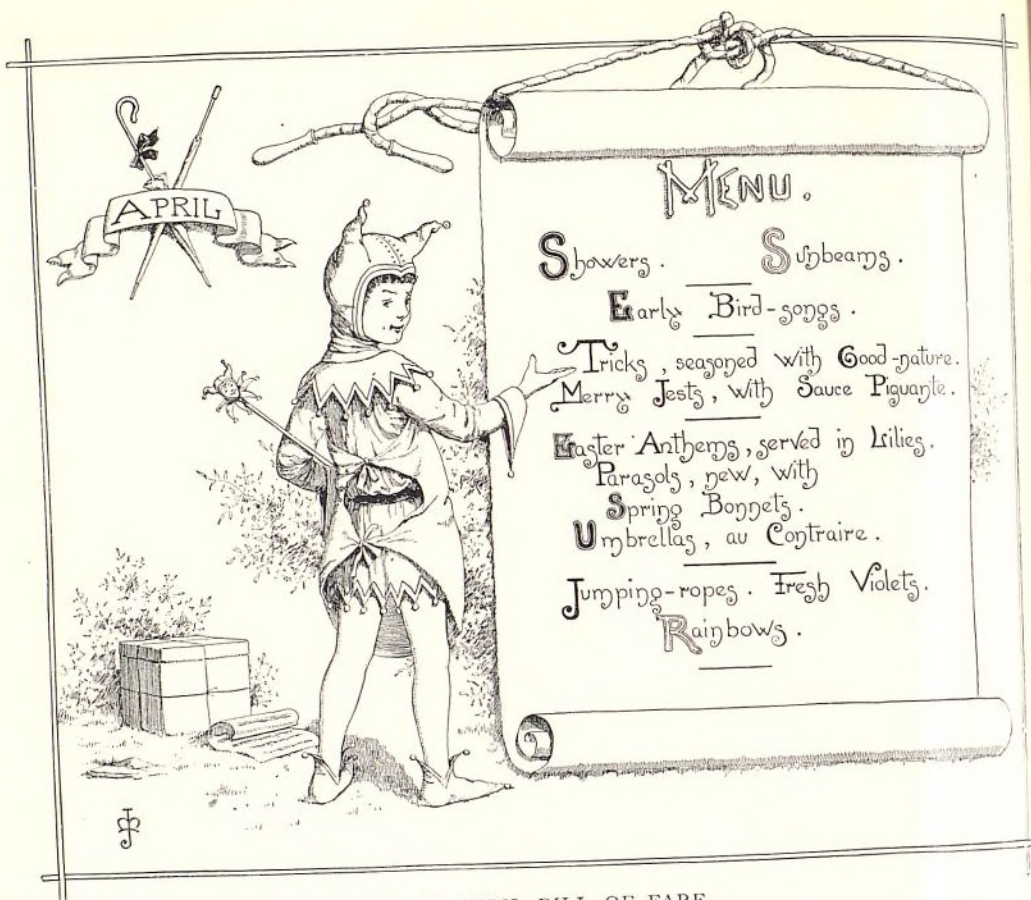 APRIL
MENU.
Showers. Sunbeams.
Early Bird-songs.
Tricks, seasoned with Good-nature.
Merry Jests, with Sauce Piquante.
Easter Anthems, served in Lilies.
Parasols, new, with
Spring Bonnets.
Umbrellas, au Contraire.
Jumping-ropes. Fresh Violets.
Rainbows.
BILL OF FARE